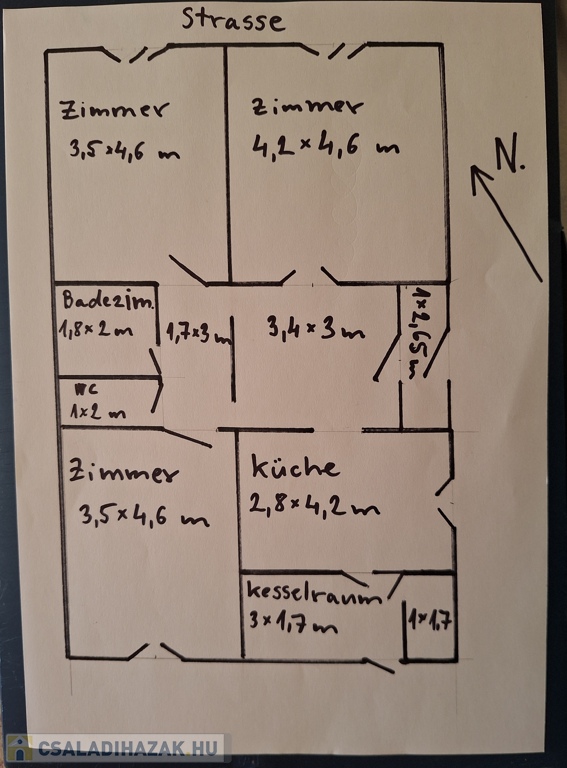 Strasse
Zimmer
3,5×4,6 m
Zimmer
4,2×4,6 m
N.
Badezim.
1,8×2 m
1,7×3m
3,4×3m
1×2,65 m
WC
1×2 m
Zimmer
3,5×4,6 m
Küche
2,8×4,2 m
Kesselraum
3×1,7 m
1×1,7
CSALADIHAZAK.HU